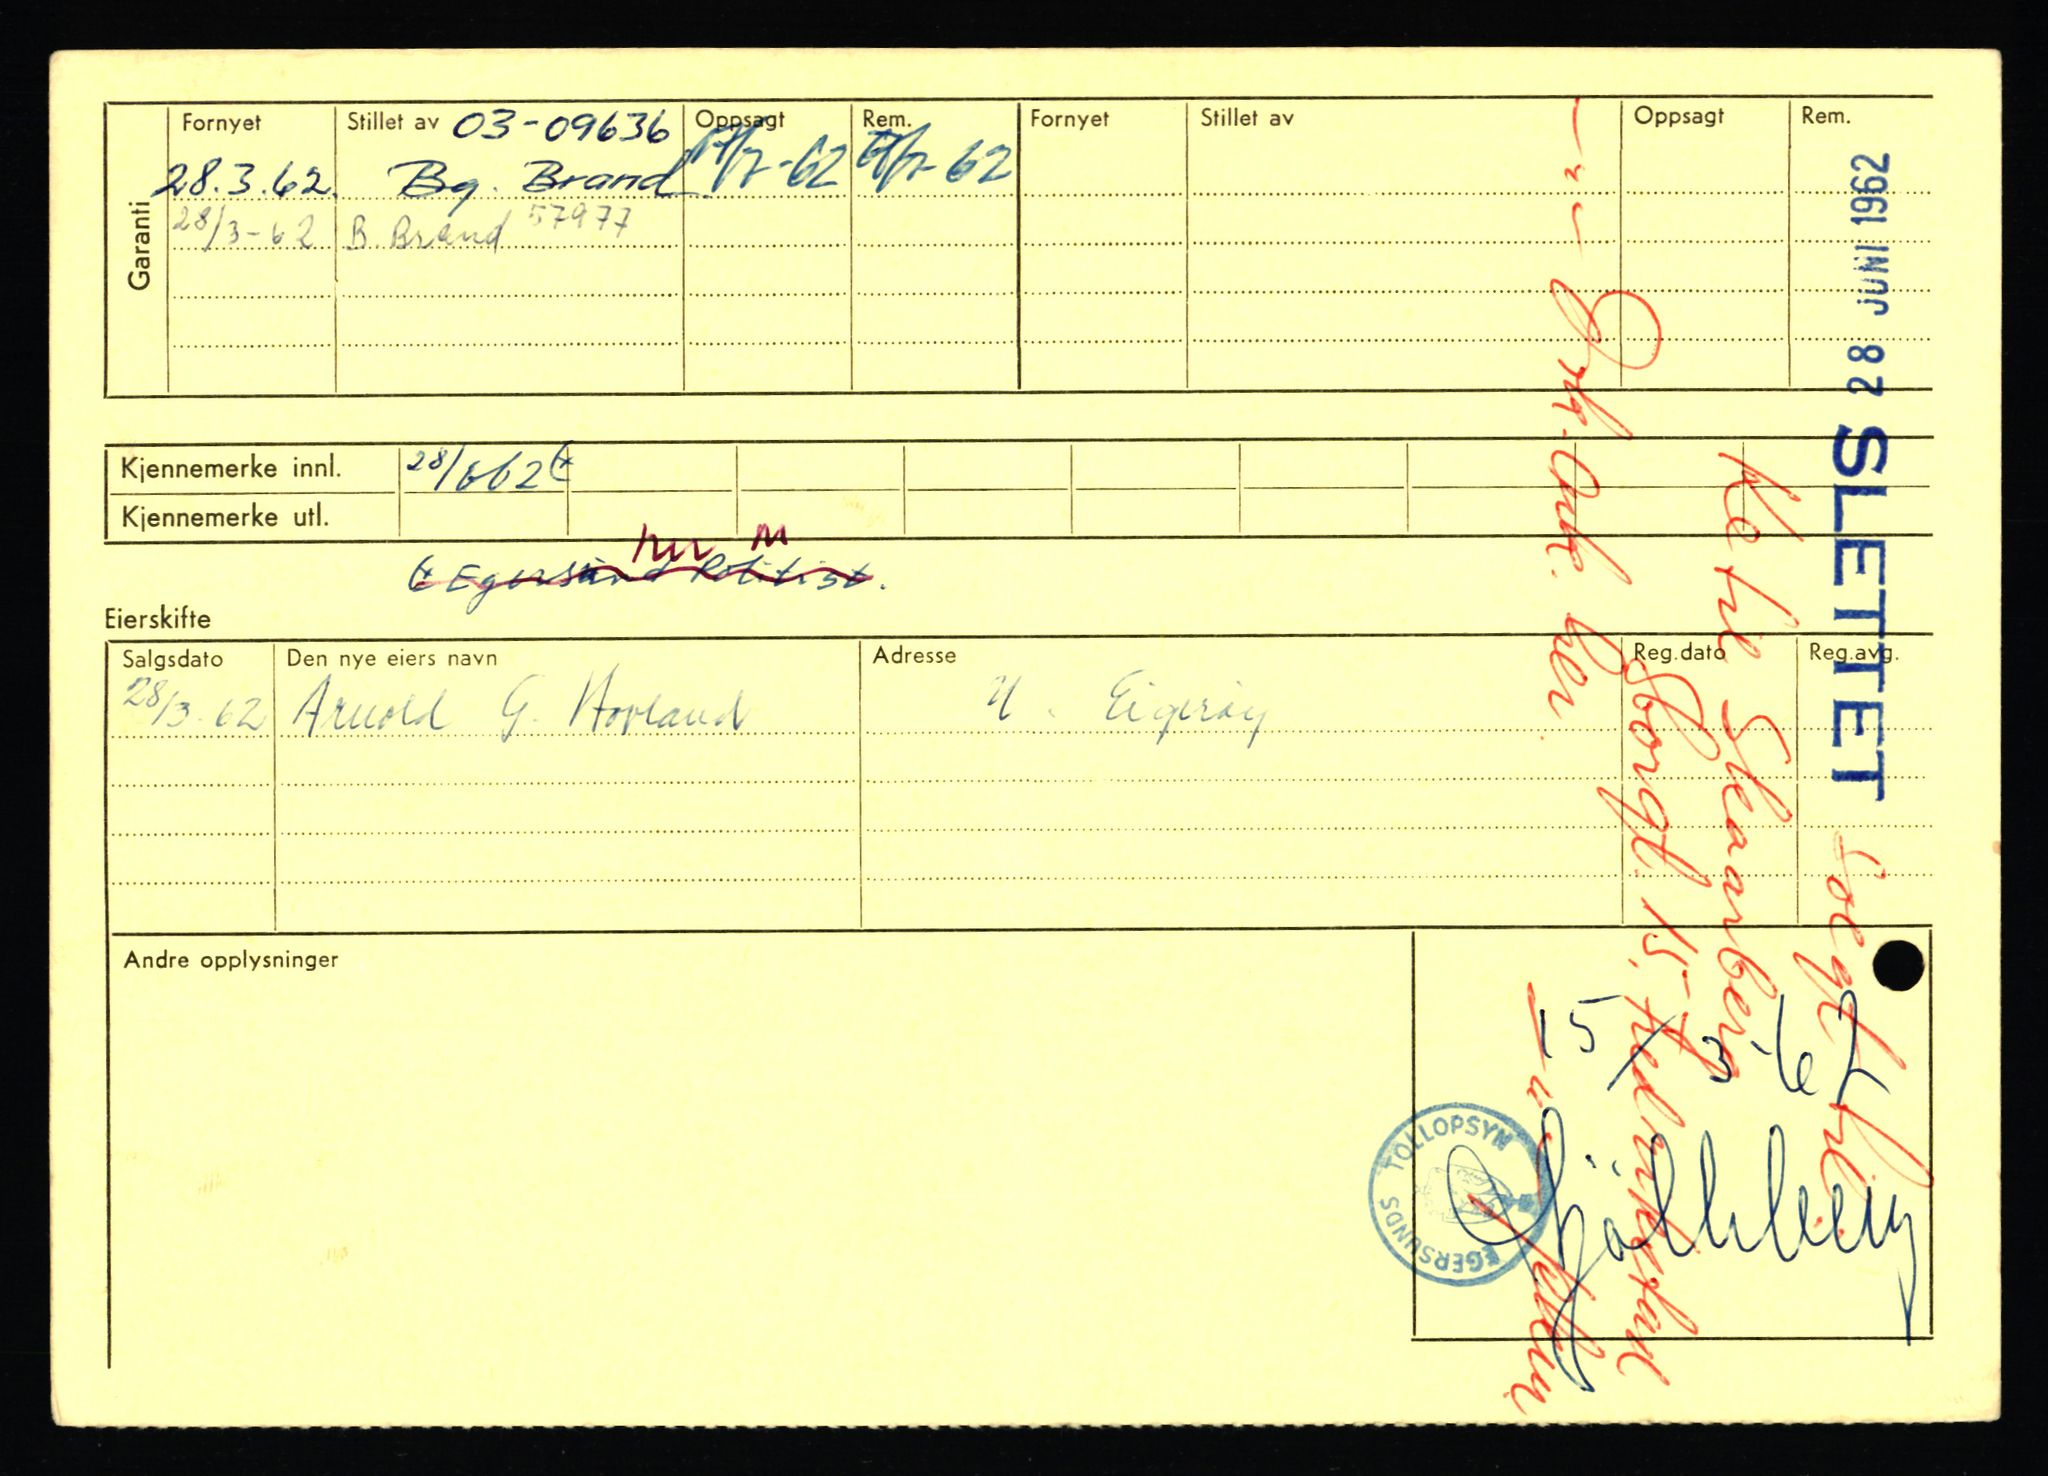 Garanti
Fornyet Stillet av 03-09636 Oppsagt Rem. Fornyet Stillet av Oppsagt Rem.
28.3.62. Bg. Brand -62 -62
28/3-62 B. Brand 57977
Kjennemerke innl. 28/6 62
Kjennemerke utl.
Egersund Politist.
Eierskifte
Salgsdato Den nye eiers navn Adresse Reg.dato Reg.avg.
28/3-62 Arnold G. Hovland N. Eigerøy
Andre opplysninger
SLETTET 28 JUNI 1962
Solgt til:
Ketil Skaanberg
Storgt. 15, Fredrikstad
her.
15/5-62
EGERSUNDS TOLLOPSYN